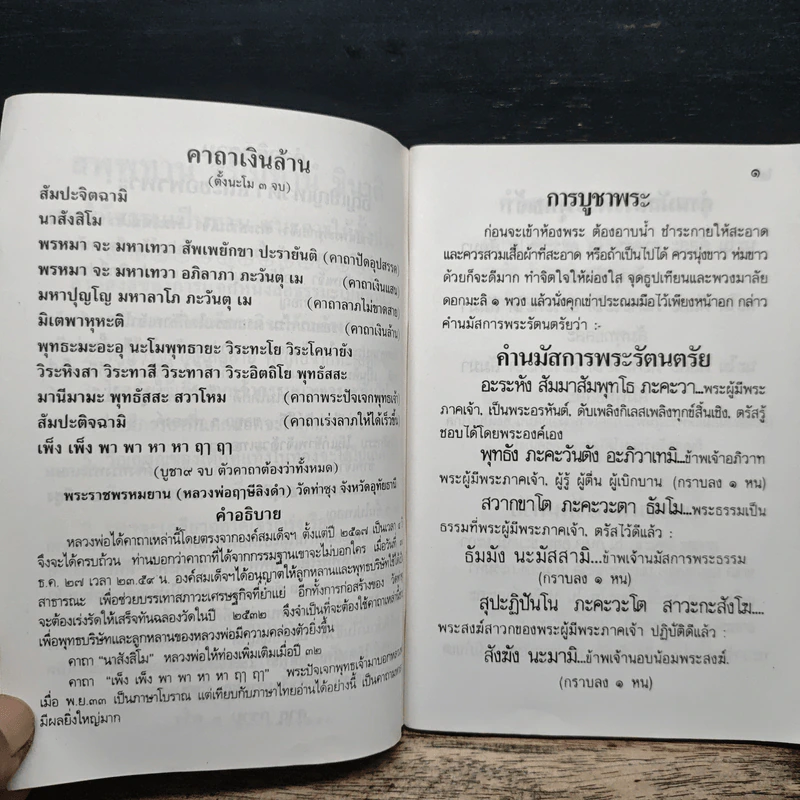 คาถาเงินล้าน
(ตั้งนะโม ๓ จบ)
สัมปะจิตฉามิ
นาสังสิโม
พรหมา จะ มหาเทวา สัพเพยักขา ปะรายันติ (คาถาปัดอุปสรรค)
พรหมา จะ มหาเทวา อภิลาภา ภะวันตุ เม (คาถาเงินแสน)
มหาปุญโญ มหาลาโภ ภะวันตุ เม (คาถาลาภไม่ขาดสาย)
มิเตพาหุหะติ (คาถาเงินล้าน)
พุทธะมะอะอุ นะโมพุทธายะ วิระทะโย วิระโคนายัง
วิระหิงสา วิระทาสี วิระทาสา วิระอิตถิโย พุทธัสสะ
มานีมามะ พุทธัสสะ สวาโหม (คาถาพระปัจเจกพุทธเจ้า)
สัมปะติจฉามิ (คาถาเร่งลาภให้ได้เร็วขึ้น)
เพ็ง เพ็ง พา พา หา หา ฤๅ ฤๅ
(บูชา๙ จบ ตัวคาถาต้องว่าทั้งหมด)
พระราชพรหมยาน (หลวงพ่อฤๅษีลิงดำ) วัดท่าซุง จังหวัดอุทัยธานี
คำอธิบาย
หลวงพ่อได้คาถาเหล่านี้โดยตรงจากองค์สมเด็จฯ ตั้งแต่ปี ๒๕๑๗ เป็นเวลา
จึงจะได้ครบถ้วน ท่านบอกว่าคาถาที่ได้จากกรรมฐานเขาจะไม่บอกใคร เมื่อวันที่
ธ.ค. ๒๗ เวลา ๒๓.๕๙ น. องค์สมเด็จฯได้อนุญาตให้ลูกหลานและพุทธบริษัทใช้ได้เป็น
สาธารณะ เพื่อช่วยบรรเทาสภาวะเศรษฐกิจที่ย่ำแย่ อีกทั้งการก่อสร้างของ วัดท่าซุง
จะต้องเร่งรัดให้เสร็จทันฉลองวัดในปี ๒๕๓๒ จึงจำเป็นที่จะต้องใช้คาถาเหล่านี้
เพื่อพุทธบริษัทและลูกหลานของหลวงพ่อมีความคล่องตัวยิ่งขึ้น
คาถา "นาสังสิโม" หลวงพ่อให้ท่องเพิ่มเติมเมื่อปี ๓๒
คาถา "เพ็ง เพ็ง พา พา หา หา ฤๅ ฤๅ" พระปัจเจกพุทธเจ้ามาบอกหลวงพ่อ
เมื่อ พ.ย.๓๓ เป็นภาษาโบราณ แต่เทียบกับภาษาไทยอ่านได้อย่างนี้ เป็นคาถามหาลาภ
มีผลยิ่งใหญ่มาก
๑
การบูชาพระ
ก่อนจะเข้าห้องพระ ต้องอาบน้ำ ชำระกายให้สะอาด
และควรสวมเสื้อผ้าที่สะอาด หรือถ้าเป็นไปได้ ควรนุ่งขาว ห่มขาว
ด้วยก็จะดีมาก ทำจิตใจให้ผ่องใส จุดธูปเทียนและพวงมาลัย
ดอกมะลิ ๑ พวง แล้วนั่งคุกเข่าประณมมือไว้เพียงหน้าอก กล่าว
คำนมัสการพระรัตนตรัยว่า :-
คำนมัสการพระรัตนตรัย
อะระหัง สัมมาสัมพุทโธ ภะคะวา...พระผู้มีพระ
ภาคเจ้า, เป็นพระอรหันต์, ดับเพลิงกิเลสเพลิงทุกข์สิ้นเชิง, ตรัสรู้
ชอบได้โดยพระองค์เอง
พุทธัง ภะคะวันตัง อะภิวาเทมิ...ข้าพเจ้าอภิวาท
พระผู้มีพระภาคเจ้า, ผู้รู้ ผู้ตื่น ผู้เบิกบาน (กราบลง ๑ หน)
สวากขาโต ภะคะวะตา ธัมโม...พระธรรมเป็น
ธรรมที่พระผู้มีพระภาคเจ้า, ตรัสไว้ดีแล้ว :
ธัมมัง นะมัสสามิ...ข้าพเจ้านมัสการพระธรรม
(กราบลง ๑ หน)
สุปะฏิปันโน ภะคะวะโต สาวะกะสังโฆ....
พระสงฆ์สาวกของพระผู้มีพระภาคเจ้า ปฏิบัติดีแล้ว :
สังฆัง นะมามิ...ข้าพเจ้านอบน้อมพระสงฆ์.
(กราบลง ๑ หน)